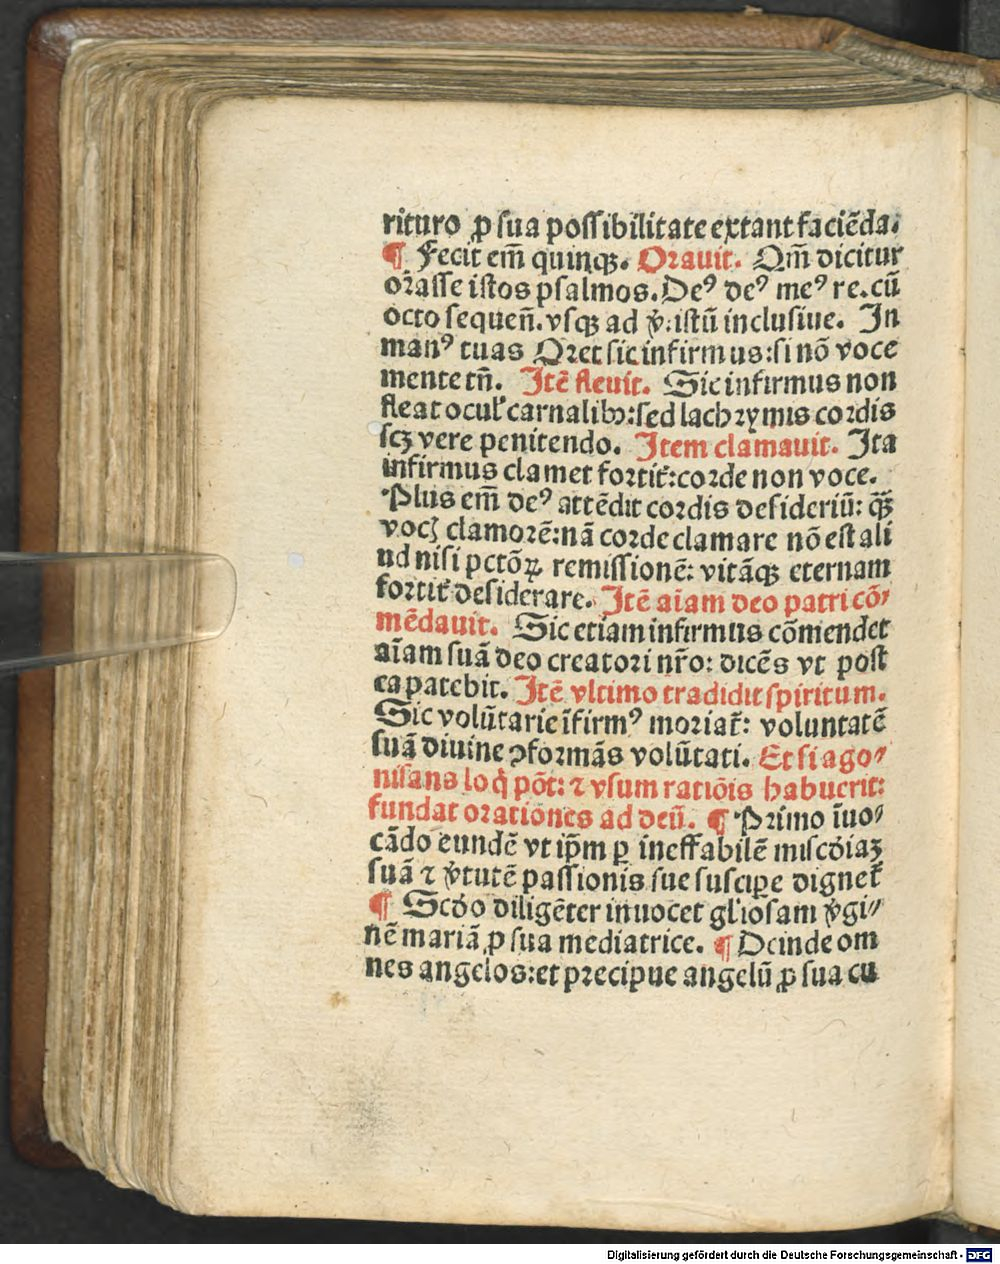 rituro ꝓ sua possibilitate extant faciẽda.
¶ Fecit em̃ quinqꝫ. Orauit. Qm̃ dicitur
orasse istos psalmos. Deꝰ deꝰ meꝰ re. cũ
octo sequen̄. vsqꝫ ad v̾. istũ inclusiue. In
manꝰ tuas Oret sic infirmus: si nõ voce
mente tn̄. Itẽ fleuit. Sic infirmus non
fleat ocul̓ carnalibꝫ: sed lachrymis cordis
scꝫ vere penitendo. Item clamauit. Ita
infirmus clamet fortit̓: corde non voce.
Plus em̃ deꝰ attẽdit cordis desideriũ: qꝫ̃
vocꝭ clamorẽ: nã corde clamare nõ est ali
ud nisi pctõꝝ remissionẽ: vitãqꝫ eternam
fortit̓ desiderare. Itẽ aĩam deo patri cõ⸗
mẽdauit. Sic etiam infirmus cõmendet
aĩam suã deo creatori nr̃o: dicẽs vt post
ea patebit. Itẽ vltimo tradidit spiritum.
Sic volũtarie ĩfirmꝰ moriat̓: voluntatẽ
suã diuine ꝯformãs volũtati. Et si ago⸗
nisans loq̇ põt: ⁊ vsum ratiõis habuerit:
fundat orationes ad deũ. ¶ Primo ĩuo⸗
cãdo eundẽ vt ip̃m ꝑ ineffabilẽ miscd̓iaꝫ
suã ⁊ v̾tutẽ passionis sue suscipe dignet̓
¶ Scd̓o diligẽter inuocet gl̓iosam v̾gi⸗
nẽ mariã ꝓ sua mediatrice. ¶ Deinde om
nes angelos: et precipue angelũ ꝓ sua cu
Digitalisierung gefördert durch die Deutsche Forschungsgemeinschaft - DFG